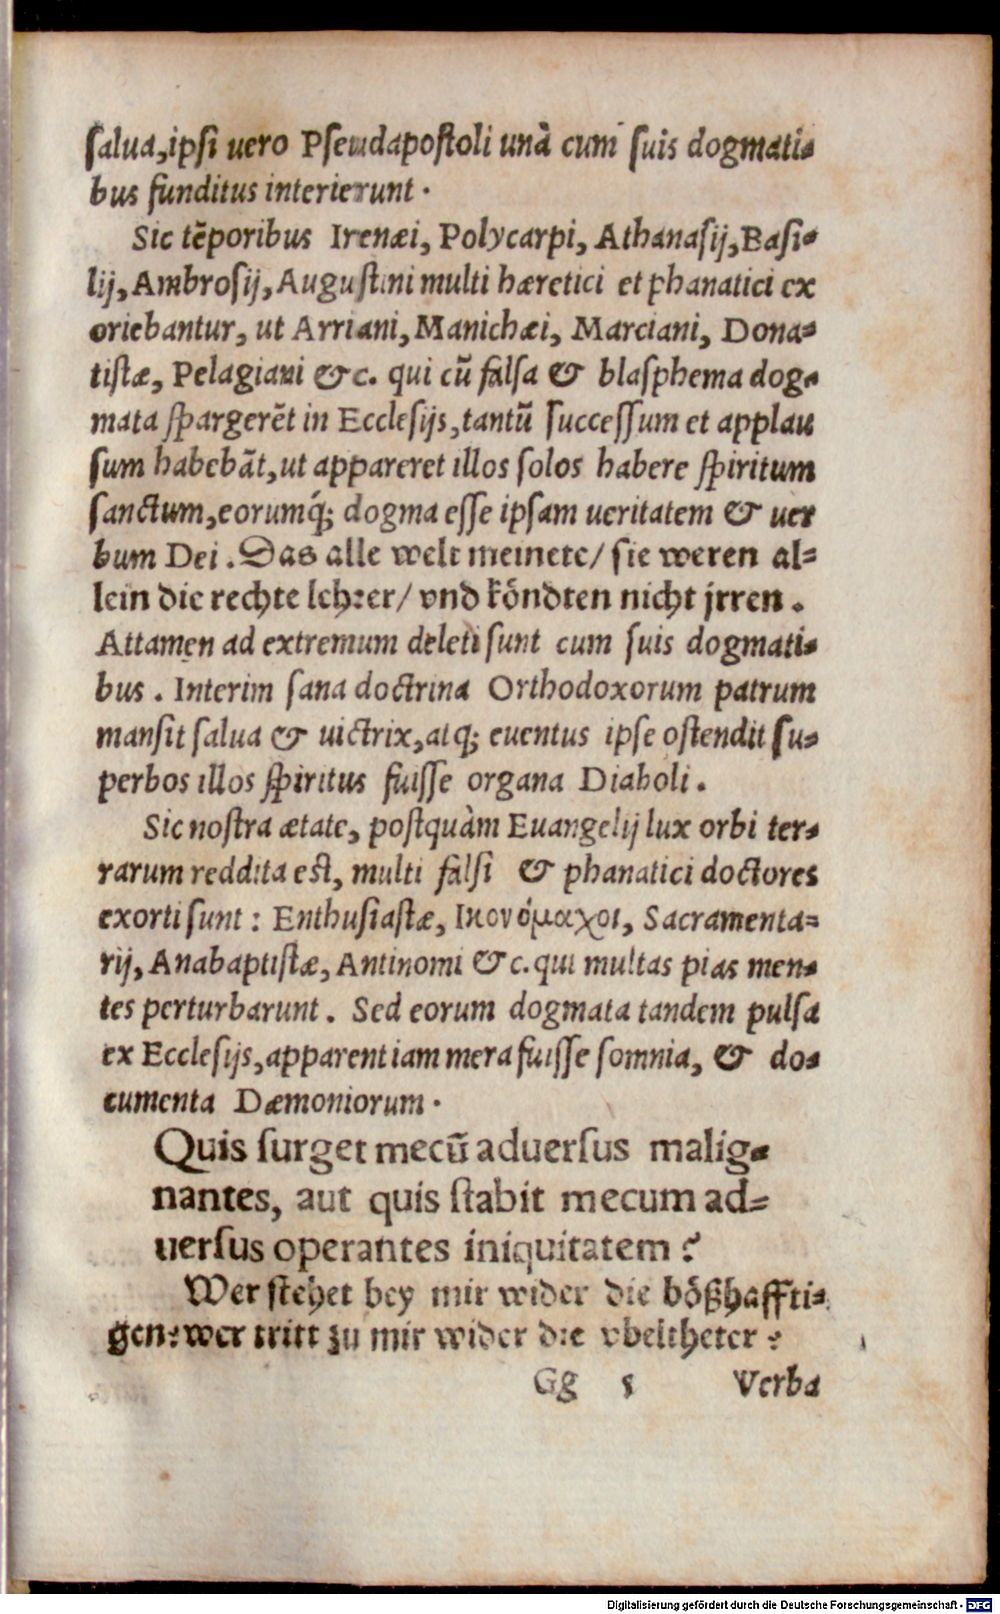 salua, ipsi uero Pseudapostoli unà cum suis dogmati-
bus funditus interierunt.
Sic tẽporibus Irenæi, Polycarpi, Athanasij, Basi-
lij, Ambrosij, Augustini multi hæretici et phanatici ex
oriebantur, ut Arriani, Manichæi, Marciani, Dona-
tistæ, Pelagiani &c. qui cũ falsa & blasphema dog-
mata spargerẽt in Ecclesijs, tantũ successum et applau
sum habebãt, ut appareret illos solos habere spiritum
sanctum, eorumq́; dogma esse ipsam ueritatem & uer
bum Dei. Das alle welt meinete/ sie weren al-
lein die rechte lehrer/ vnd köndten nicht jrren.
Attamen ad extremum deleti sunt cum suis dogmati-
bus. Interim sana doctrina Orthodoxorum patrum
mansit salua & uictrix, atq; euentus ipse ostendit su-
perbos illos spiritus fuisse organa Diaboli.
Sic nostra ætate, postquàm Euangelij lux orbi ter-
rarum reddita est, multi falsi & phanatici doctores
exorti sunt: Enthusiastæ, Ικονόμαχοι, Sacramenta-
rij, Anabaptistæ, Antinomi &c. qui multas pias men-
tes perturbarunt. Sed eorum dogmata tandem pulsa
ex Ecclesijs, apparent iam mera fuisse somnia, & do-
cumenta Dæmoniorum.
Quis surget mecũ aduersus malig-
nantes, aut quis stabit mecum ad-
uersus operantes iniquitatem?
Wer stehet bey mir wider die bößhaffti-
gen? wer tritt zu mir wider die vbeltheter?
Gg 5 Verba
Digitalisierung gefördert durch die Deutsche Forschungsgemeinschaft - DFG